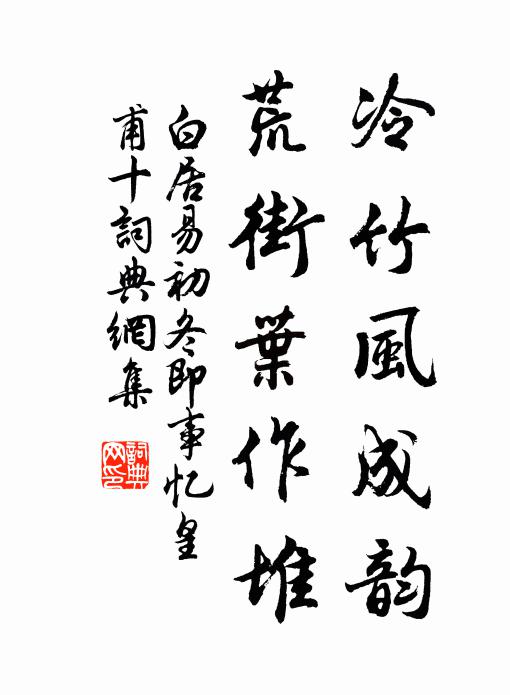 冷竹風成韵
荒街葉作堆
白居易初冬即事忆皇
甫十詞典網集
詞典
网印